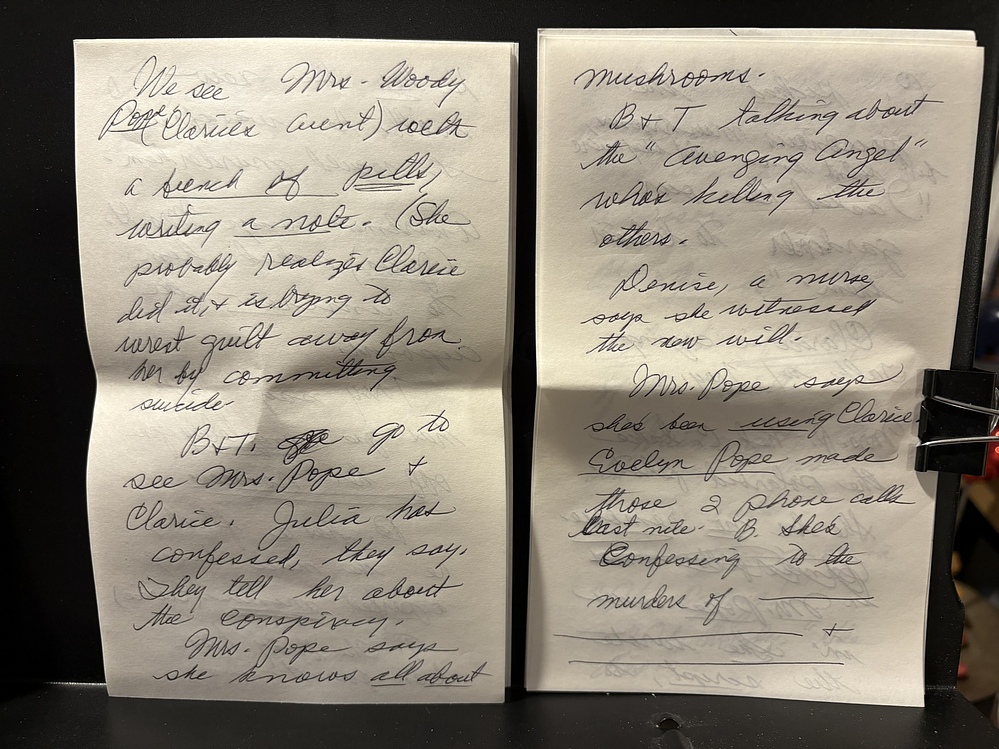 We see Mrs. Woody
Pope (Clarice's aunt) with
a bunch of pills,
writing a note. (She
probably realizes Clarice
did it, & is trying to
wrest guilt away from
her by committing
suicide
B&T. go to
see Mrs. Pope &
Clarice. Julia has
confessed, they say.
They tell her about
the conspiracy.
Mrs. Pope says
she knows all about
mushrooms.
B & T talking about
the "avenging angel"
who's killing the
others.
Denise, a nurse,
says she witnessed
the new will.
Mrs. Pope says
she's been using Clarice.
Evelyn Pope made
those 2 phone calls
last nite. B. She's
Confessing to the
murders of
&